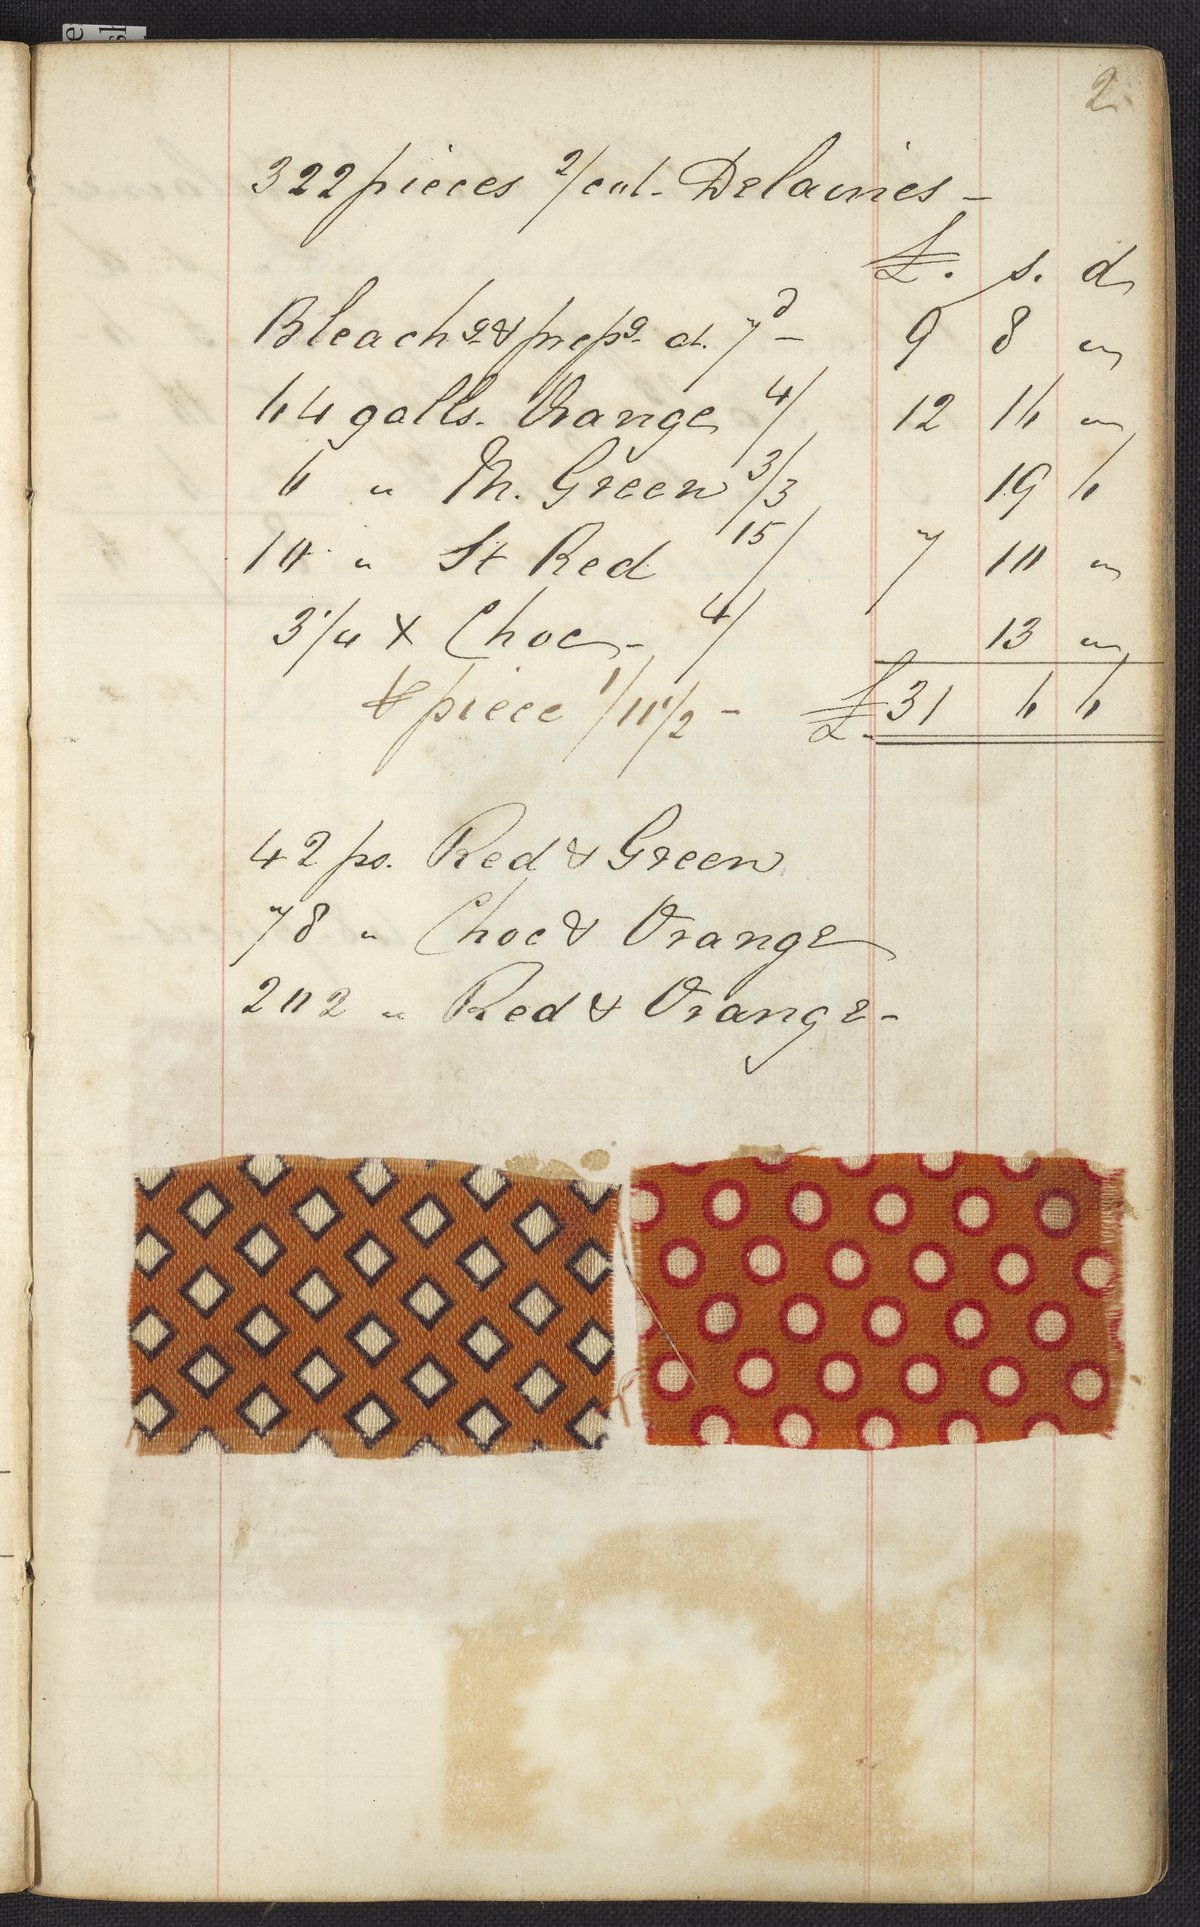 2
322 pieces 2/col. Delaines -
£. s. d
Bleachg & prepg at 7d - 9 8 "
64 galls. Orange 4/ 12 16 "
6 " M. Green 3/3 19 6
10 " St Red 15/ 7 10 "
3 1/4 x Choc - 4/ 13 "
& piece 1/11 1/2 - £ 31 6 6
42 ps. Red & Green
78 " Choc & Orange
202 " Red & Orange -